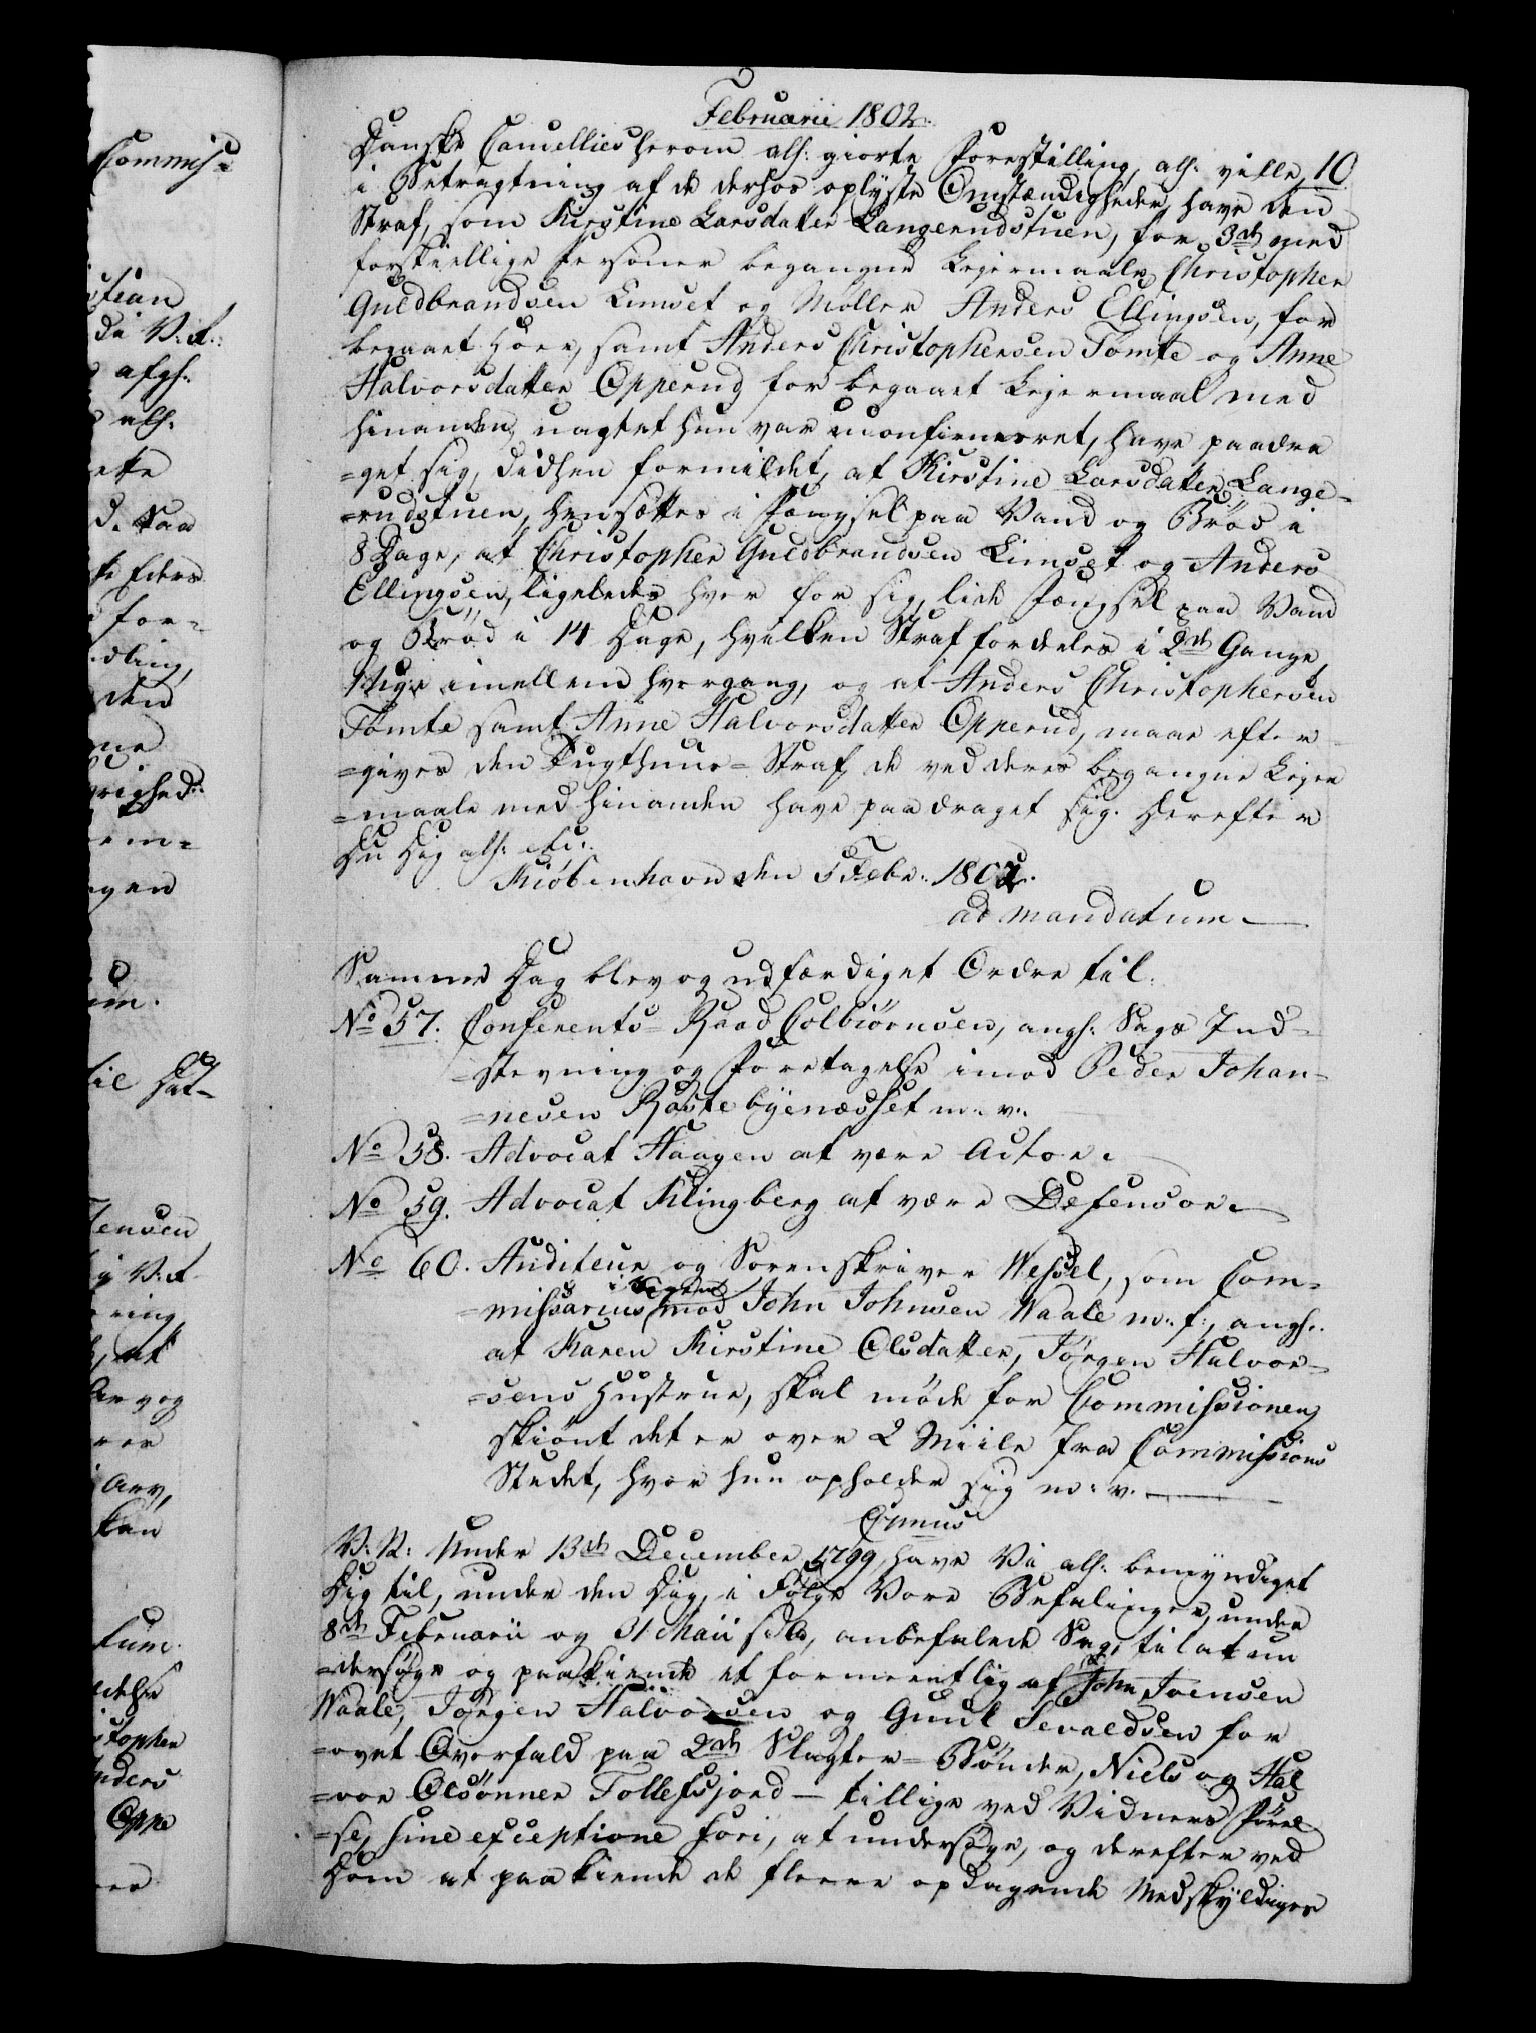 Februarii 1802.
10
Danske Cancellies herom alh: giorte Forestilling, alh: ville
i Betragtning af de derhos oplyste Omstændigheder, have den
Straf, som Kirstine Larsdatter Langerudstuen, for 3de med
forskiellige Personer begangne Leiermaale, Christopher
Guldbrandsen Limset og Møller Anders Ellingsen, for
begaaet Hoer, samt Anders Christophersen Tømte og Anne
Halvorsdatter Opperud for begaaet Leiermaal med
hinanden, uagtet hun var uconfirmeret, have paadra
=get sig, didhen formildet, at Kirstine Larsdatter Lange=
=rudstuen, hensættes i Fængsel paa Vand og Brød i
8 Dage, at Christopher Guldbrandsen Limset og Anders
Ellingsen, ligeledes hver for sig, lide Fængsel paa Vand
og Brød i 14 Dage, hvilken Straf fordeles i 2de Gange,
1 Uge imellem hvergang, og at Anders Christophersen
Tømte samt Anne Halvorsdatter Opperud, maae efter
=gives den Tugthuus=Straf, de ved deres begangne Leier
=maale med hinanden have paadraget sig. Herefter
Du Dig alh: etc:
Kiøbenhavn den 5 Febr: 1802.
ad mandatum.
Samme Dag blev og udfærdiget Ordre til:
No 57. Conferents=Raad Colbiørnsen, angh: Sags Ind=
=stevning og Foretagelse imod Peder Johan=
=nesen Røstebyenæsset m: v:
No 58. Advocat Haagen at være Actor.
No 59. Advocat Klingberg at være Defensor.
No 60. Auditeur og Sorenskriver Wessel, som Com=
i Sagen
=missarius mod John Johnsen Waale m: f:, angh:
at Karen Kirstine Olsdatter, Jørgen Halvor=
=sens Hustrue, skal møde for Commissionen,
skiønt det er over 2 Miile fra Commissions
Stedet, hvor hun opholder sig m: v.
V: R: Under 13de December 1799, have Vi alh: bemyndiget
Dig til, under den Dig, i Følge Vore Befalinger, under
8de Februarii og 31 Maii s: A:, anbefalede Sag, til at un
=dersøge og paakiende et formeentlig af John Joensen
Waale, Jørgen Halvorsen og Gunl Sevaldsen for
=øvet Overfald paa 2de Slagter=Bønder, Niels og Hal
=vor Olsønner Tollefsjord – tillige ved Vidners Førel
=se, sine exceptione fori, at undersøge, og derefter ved
Dom at paakiende de fleere opdagende Medskyldiges